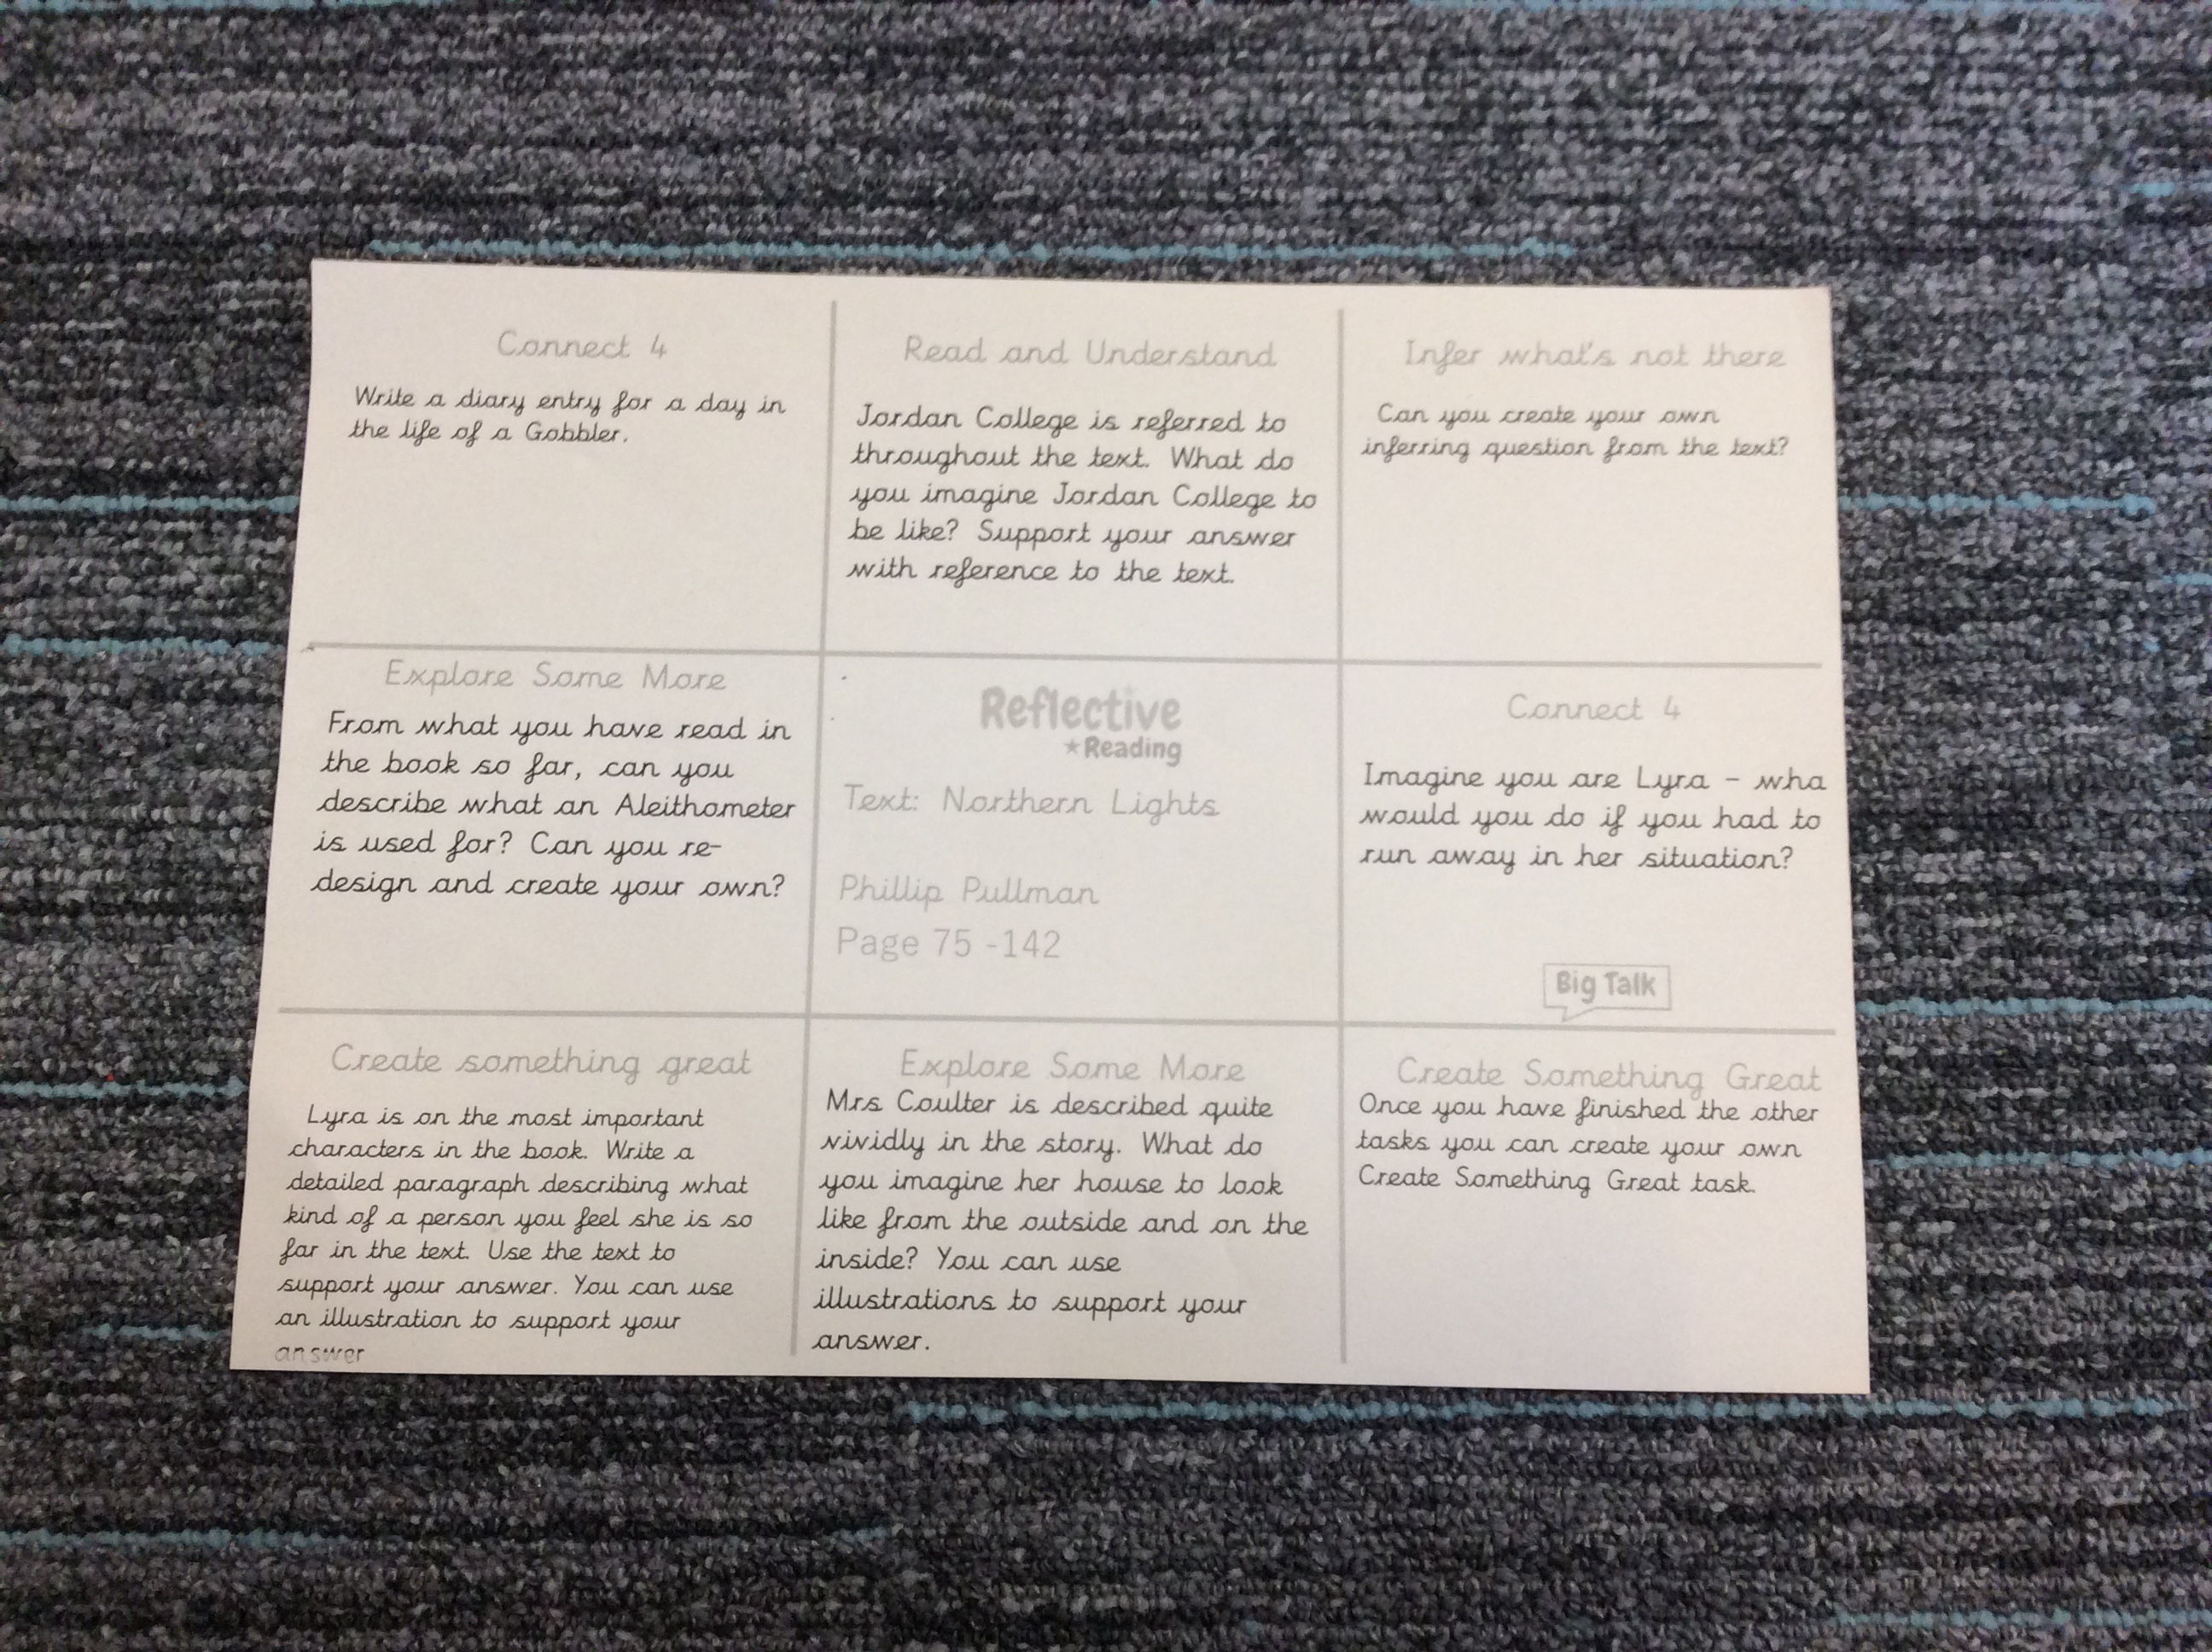 Connect 4
Write a diary entry for a day in
the life of a Gobbler.
Read and Understand
Jordan College is referred to
throughout the text. What do
you imagine Jordan College to
be like? Support your answer
with reference to the text.
Infer what's not there
Can you create your own
inferring question from the text?
Explore Some More
From what you have read in
the book so far, can you
describe what an Aleithometer
is used for? Can you re-
design and create your own?
Reflective
★Reading
Text: Northern Lights
Phillip Pullman
Page 75 -142
Connect 4
Imagine you are Lyra – wha
would you do if you had to
run away in her situation?
Big Talk
Create something great
Lyra is on the most important
characters in the book. Write a
detailed paragraph describing what
kind of a person you feel she is so
far in the text. Use the text to
support your answer. You can use
an illustration to support your
answer
Explore Some More
Mrs Coulter is described quite
vividly in the story. What do
you imagine her house to look
like from the outside and on the
inside? You can use
illustrations to support your
answer.
Create Something Great
Once you have finished the other
tasks you can create your own
Create Something Great task.